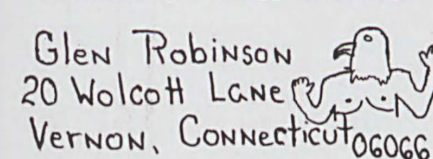 Glen Robinson
20 Wolcott Lane
Vernon, Connecticut 06066